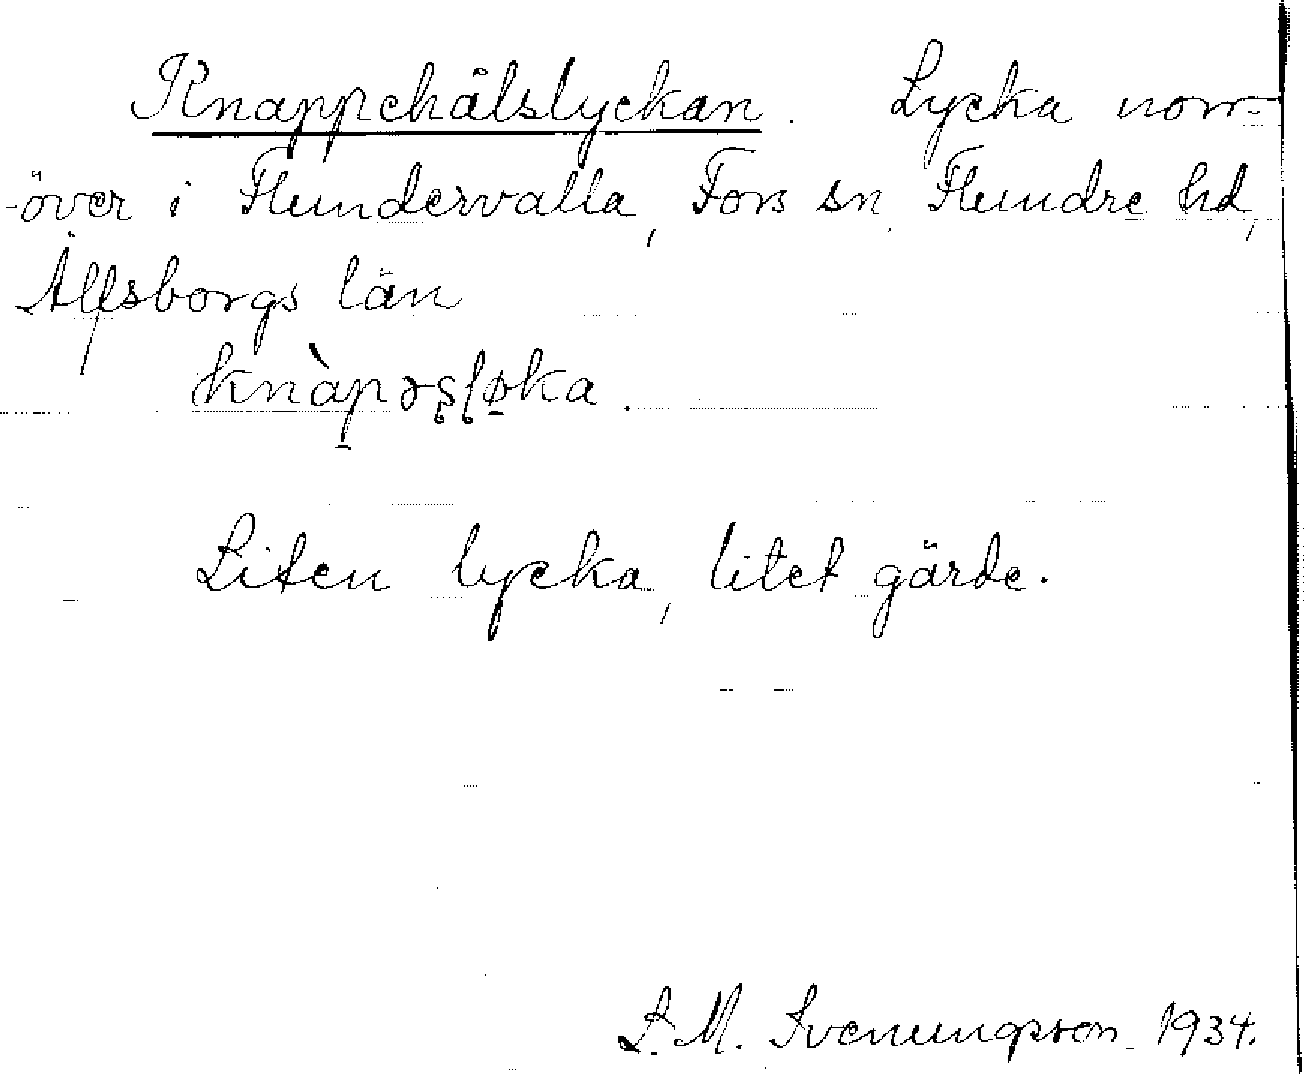 Knappehålslyckan. Lycka norr-
över i Flundervalla, Fors sn, Flundre hd,
Älfsborgs län
knàpəʂɭøka.
Liten lycka, litet gärde.
L. M. Svenungsson 1934.